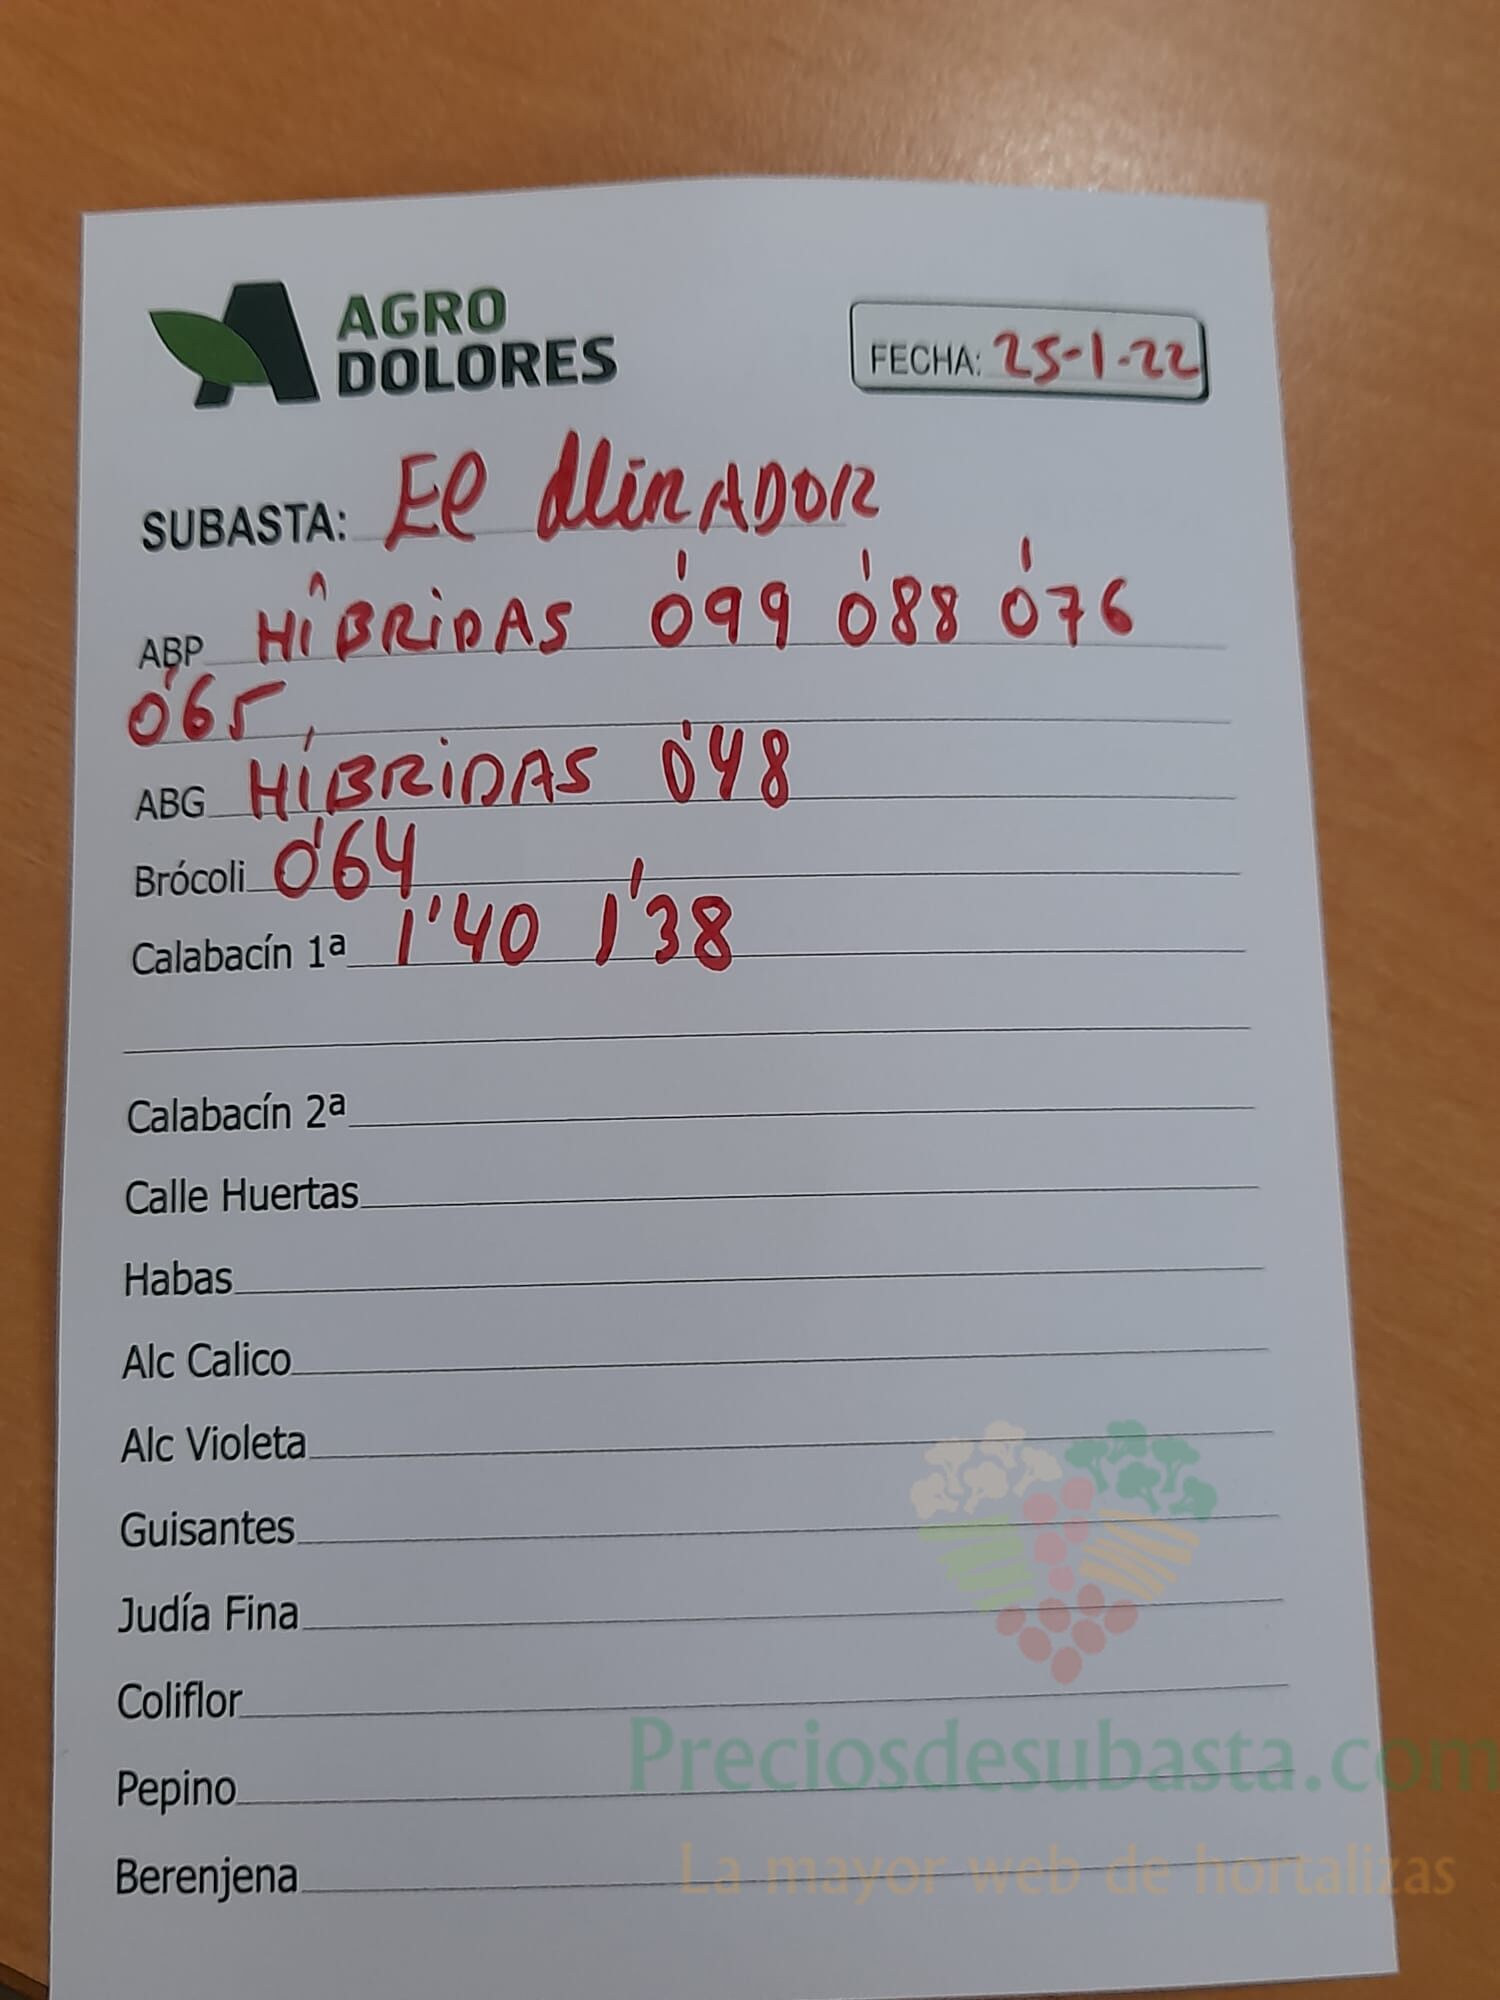 AGRO
DOLORES
FECHA: 25-1-22
SUBASTA: El MirADOR
ABP HÍBRiDAS 0'99 0'88 0'76
0'65
ABG HÍBRiDAS 0'48
Brócoli 0'64
Calabacín 1ª 1'40 1'38
Calabacín 2ª
Calle Huertas
Habas
Alc Calico
Alc Violeta
Guisantes
Judía Fina
Coliflor
Preciosdesubasta.com
Pepino
La mayor web de hortalizas
Berenjena